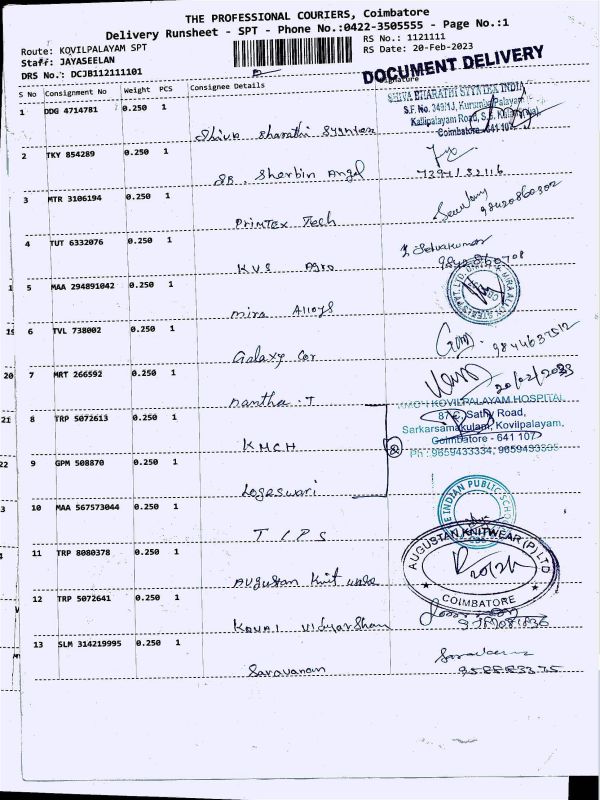 THE PROFESSIONAL COURIERS, Coimbatore
Delivery Runsheet - SPT - Phone No.:0422-3505555 - Page No.:1
Route: KOVILPALAYAM SPT
RS No.: 1121111
Staff: JAYASEELAN
RS Date: 20-Feb-2023
DRS No.: DCJB112111101
DOCUMENT DELIVERY
S No Consignment No Weight PCS Consignee Details Signature
1 DDG 4714781 0.250 1
SHIVA BHARATHI SYSTEMS INDIA
S.F. No. 349/1J, Kurumbapalayam
Kallipalayam Road, S.S. Kulam
Coimbatore - 641 107
Shiva Bharathi Systems
2 TKY 854289 0.250 1
SB. Sherbin Angel
3 MTR 3106194 0.250 1
98420860302
Primtex Tech
4 TUT 6332076 0.250 1
Selvakumar
KVS Agro
5 MAA 294891042 0.250 1
Mira Alloys
6 TVL 738002 0.250 1
9844637512
Galaxy Car
7 MRT 266592 0.250 1
20/02/2023
Nantha. T
8 TRP 5072613 0.250 1
KOVILPALAYAM HOSPITAL
Sathy Road,
Sarkarsamakulam, Kovilpalayam,
Coimbatore - 641 107
Ph: 9659433334,
KMCH
9 GPM 508870 0.250 1
Logeswari
10 MAA 567573044 0.250 1
THE INDIAN PUBLIC SCHOOL
TIPS
11 TRP 8080378 0.250 1
AUGUSTAN KNITWEAR (P) LTD
COIMBATORE
Augustan Knit ware
12 TRP 5072641 0.250 1
Kovai Vidyarshan
13 SLM 314219995 0.250 1
Saravanan